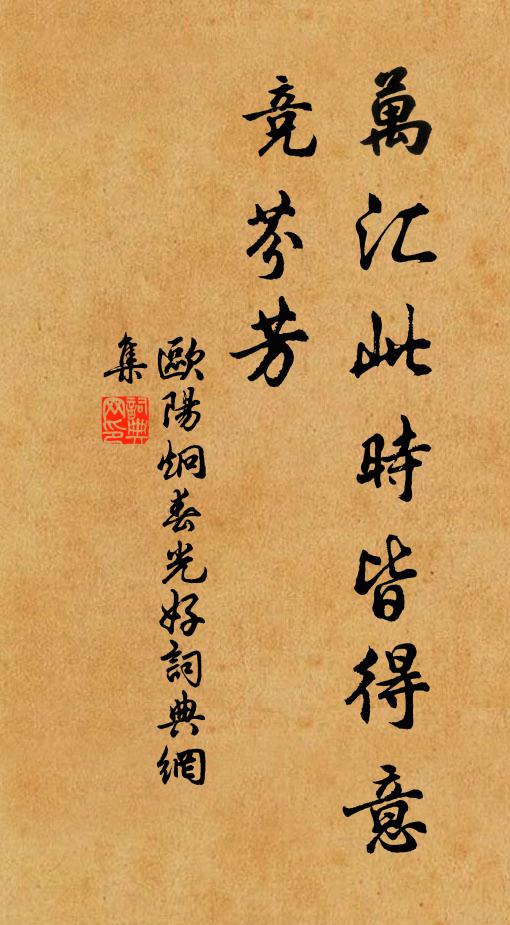 萬汇此時皆得意
竞芬芳
歐陽炯春光好詞典網
集
詞典
网印